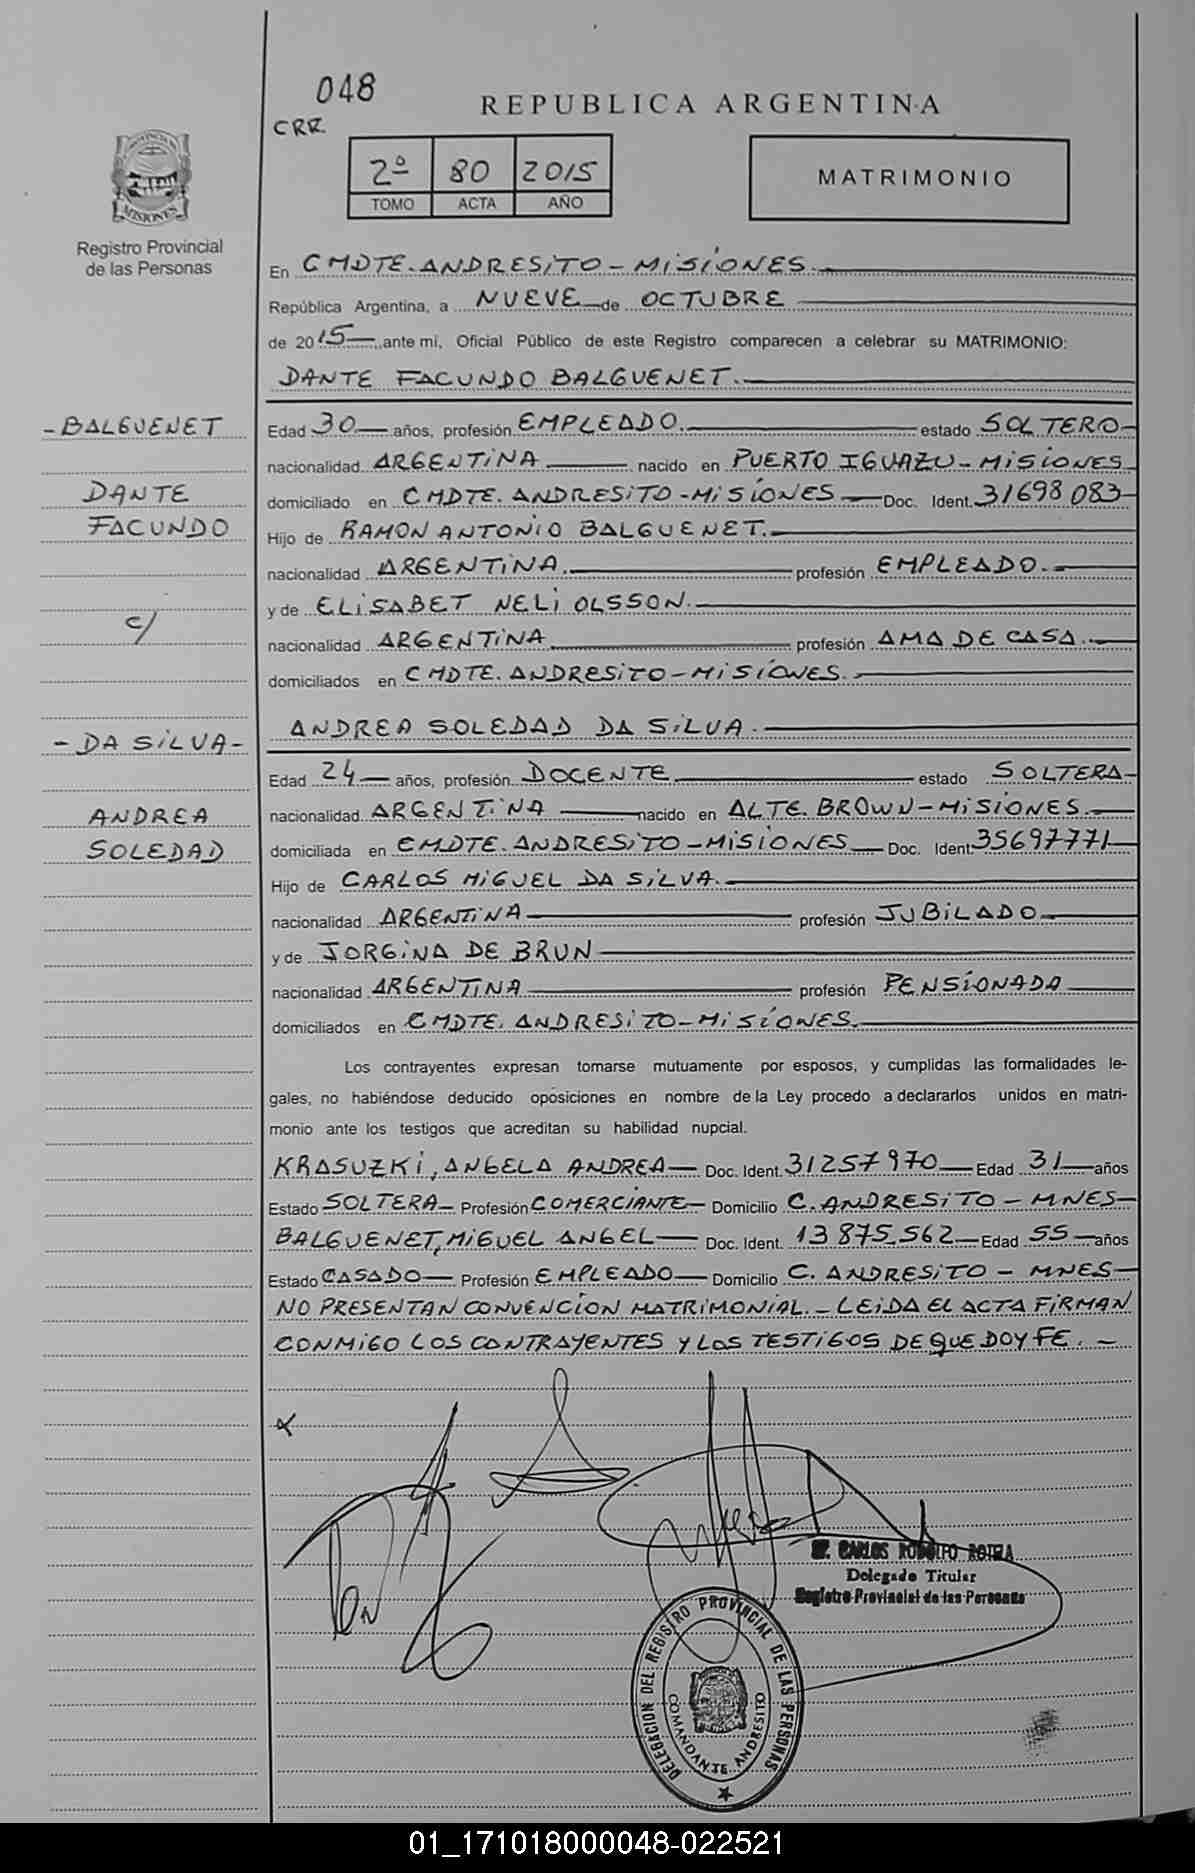 048
CRR
REPUBLICA ARGENTINA
2º 80 2015
TOMO ACTA AÑO
MATRIMONIO
PROVINCIA
MISIONES
Registro Provincial
de las Personas
En CMDTE. ANDRESITO - MISIONES.
República Argentina, a NUEVE de OCTUBRE
de 2015 ante mi, Oficial Público de este Registro comparecen a celebrar su MATRIMONIO:
DANTE FACUNDO BALGUENET.
- BALGUENET
DANTE
FACUNDO
c/
- DA SILVA -
ANDREA
SOLEDAD
Edad 30 años, profesión EMPLEADO. estado SOLTERO
nacionalidad ARGENTINA nacido en PUERTO IGUAZU - MISIONES
domiciliado en CMDTE. ANDRESITO - MISIONES Doc. Ident. 31698083
Hijo de RAMON ANTONIO BALGUENET.
nacionalidad ARGENTINA. profesión EMPLEADO.
y de ELISABET NELI OLSSON.
nacionalidad ARGENTINA profesión AMA DE CASA.
domiciliados en CMDTE. ANDRESITO - MISIONES.
ANDREA SOLEDAD DA SILVA.
Edad 24 años, profesión DOCENTE estado SOLTERA
nacionalidad ARGENTINA nacido en ALTE. BROWN - MISIONES.
domiciliada en CMDTE. ANDRESITO - MISIONES Doc. Ident. 35697771
Hijo de CARLOS MIGUEL DA SILVA.
nacionalidad ARGENTINA profesión JUBILADO
y de JORGINA DE BRUN
nacionalidad ARGENTINA profesión PENSIONADA
domiciliados en CMDTE. ANDRESITO - MISIONES.
Los contrayentes expresan tomarse mutuamente por esposos, y cumplidas las formalidades le-
gales, no habiéndose deducido oposiciones en nombre de la Ley procedo a declararlos unidos en matri-
monio ante los testigos que acreditan su habilidad nupcial.
KRASUZKI, ANGELA ANDREA Doc. Ident. 31257970 Edad 31 años
Estado SOLTERA Profesión COMERCIANTE Domicilio C. ANDRESITO - MNES
BALGUENET, MIGUEL ANGEL Doc. Ident. 13875562 Edad 55 años
Estado CASADO Profesión EMPLEADO Domicilio C. ANDRESITO - MNES
NO PRESENTAN CONVENCION MATRIMONIAL. - LEIDA EL ACTA FIRMAN
CONMIGO LOS CONTRAYENTES Y LOS TESTIGOS DE QUE DOY FE. -
CARLOS RODOLFO
Delegado Titular
Registro Provincial de las Personas
DELEGACION DEL REGISTRO PROVINCIAL DE LAS PERSONAS
COMANDANTE ANDRESITO
01_171018000048-022521